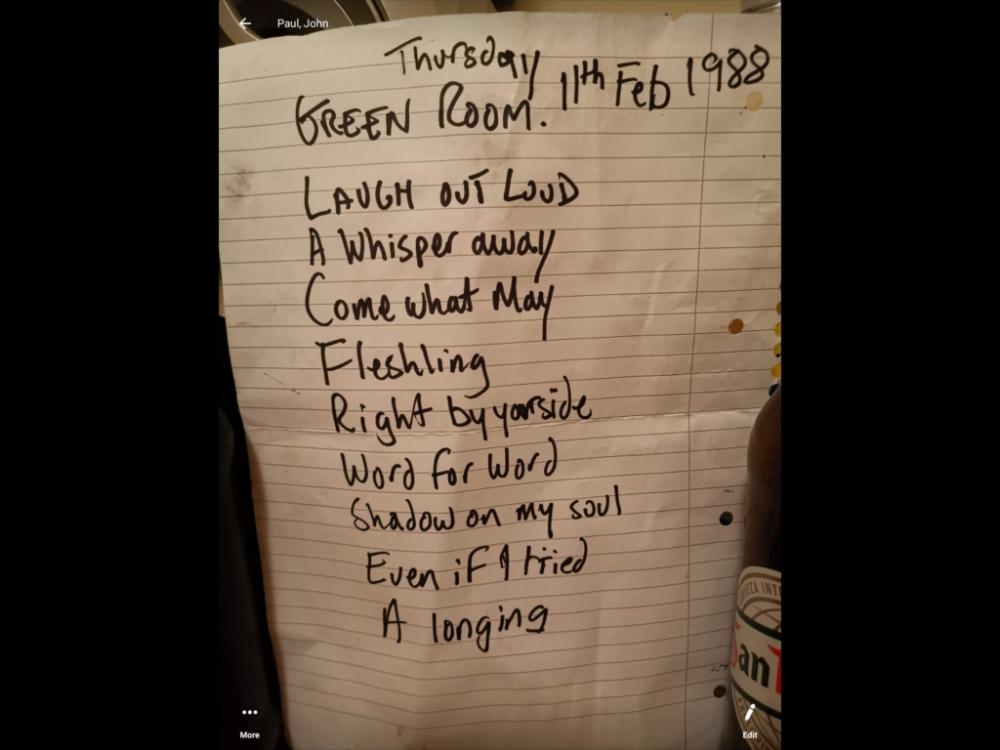 Paul, John
Thursday
GREEN ROOM. 11th Feb 1988
LAUGH OUT LOUD
A Whisper away
Come what May
Fleshling
Right by yourside
Word for Word
Shadow on my soul
Even if I tried
A longing
San
More
Edit